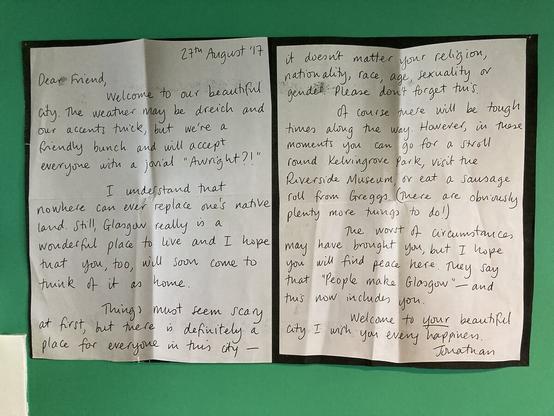 27th August '17
Dear Friend,
Welcome to our beautiful
city. The weather may be dreich and
our accents thick, but we're a
friendly bunch and will accept
everyone with a jovial "Awright?!"
I understand that
nowhere can ever replace one's native
land. Still, Glasgow really is a
wonderful place to live and I hope
that you, too, will soon come to
think of it as home.
Things must seem scary
at first, but there is definitely a
place for everyone in this city —
it doesn't matter your religion,
nationality, race, age, sexuality or
gender. Please don't forget this.
Of course there will be tough
times along the way. However, in these
moments you can go for a stroll
round Kelvingrove Park, visit the
Riverside Museum, or eat a sausage
roll from Greggs (there are obviously
plenty more things to do!)
The worst of circumstances
may have brought you, but I hope
you will find peace here. They say
that "People make Glasgow" — and
this now includes you.
Welcome to your beautiful
city. I wish you every happiness.
Jonathan